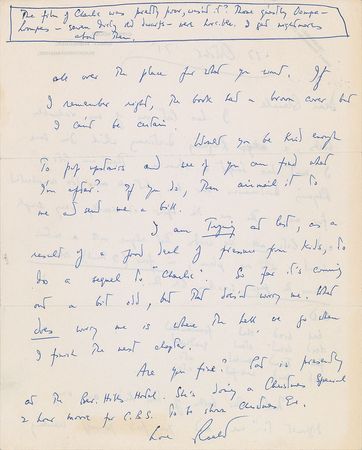 The film of Charlie was pretty poor, wasn't it? Those ghastly Oompa-
Loompas – seven dirty old dwarfs – were horrible. I got nightmares
about them.
all over the place for what you want. If
I remember right, the book had a brown cover but
I can't be certain.
Would you be kind enough
to pop upstairs and see if you can find what
I'm after? If you do, then airmail it to
me and send me a bill.
I am trying at last, as a
result of a good deal of pressure from kids, to
do a sequel to "Charlie". So far it's coming
out a bit odd, but that doesn't worry me. What
does worry me is where the hell we go when
I finish the next chapter.
Are you fine? Pat is presently
at the Bev. Hills Hotel. She's doing a Christmas Special
2 hour movie for C.B.S. to show Christmas Eve.
Love Roald